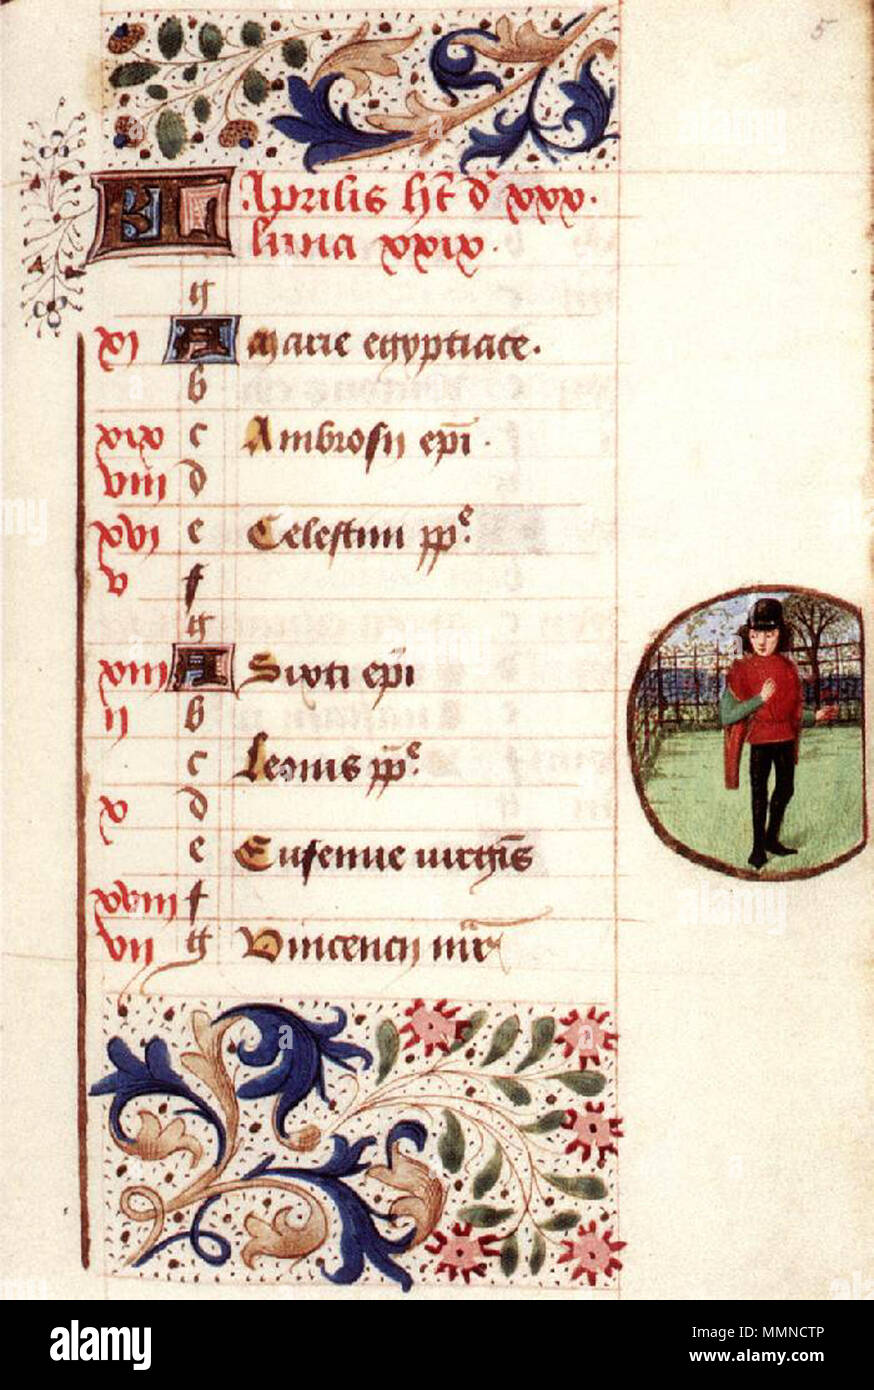 5
KL Aprilis hēt d' xxx.
luna xxix.
g
xi A Marie egyptiace.
b
xix c Ambrosii epī.
viii d
xvi e Celestini ppe.
v f
g
xiii A Sixti epī
ii b
c Leonis ppe.
x d
e Eufemie virgīs
xviii f
vii g Vincencii mr̄
alamy
Image ID: MMNCTP
www.alamy.com